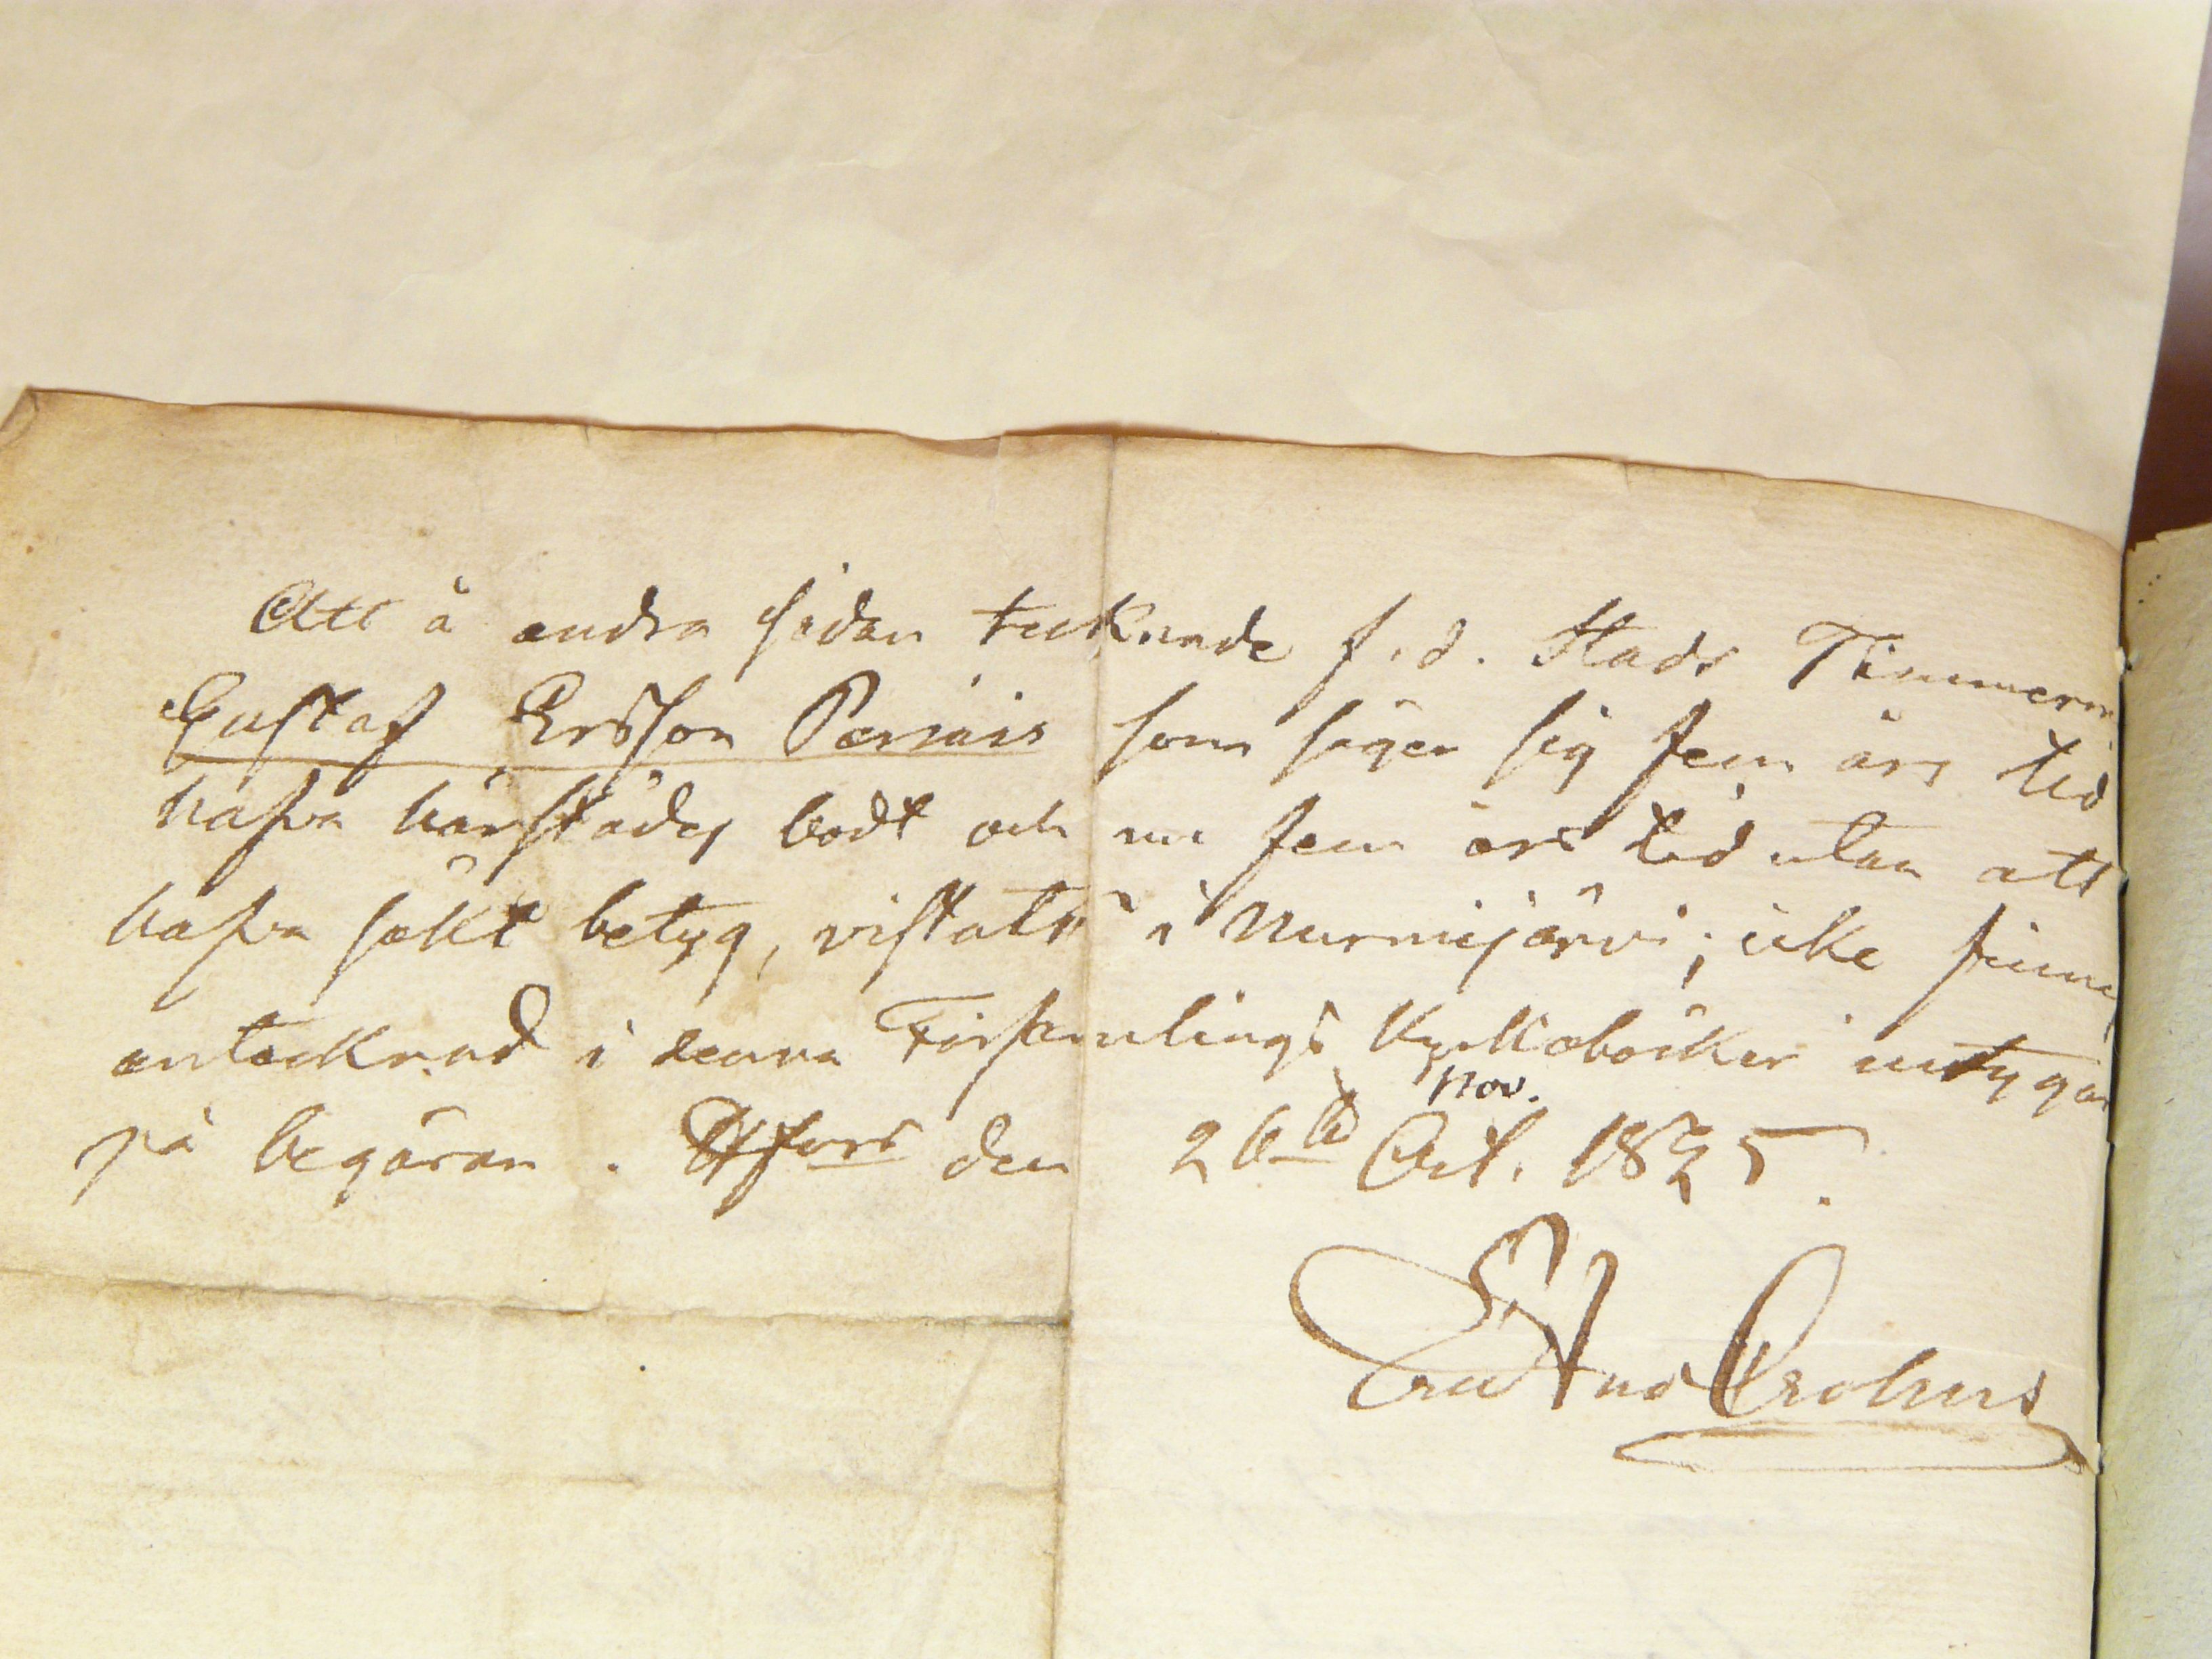 Att å andra sidan tecknade f.d. Stads Timmerm
Gustaf Ersson Pernäis som säger sig fem års tid
hafva härstädes bodt och nu fem års tid utan att
hafva sökt betyg, vistats i Nurmijärvi; icke finnes
antecknad i denna Församlings Kyrkoböcker intygar
på begäran. Hfors den 26te Oct. 1825.
Nov.
Crohns